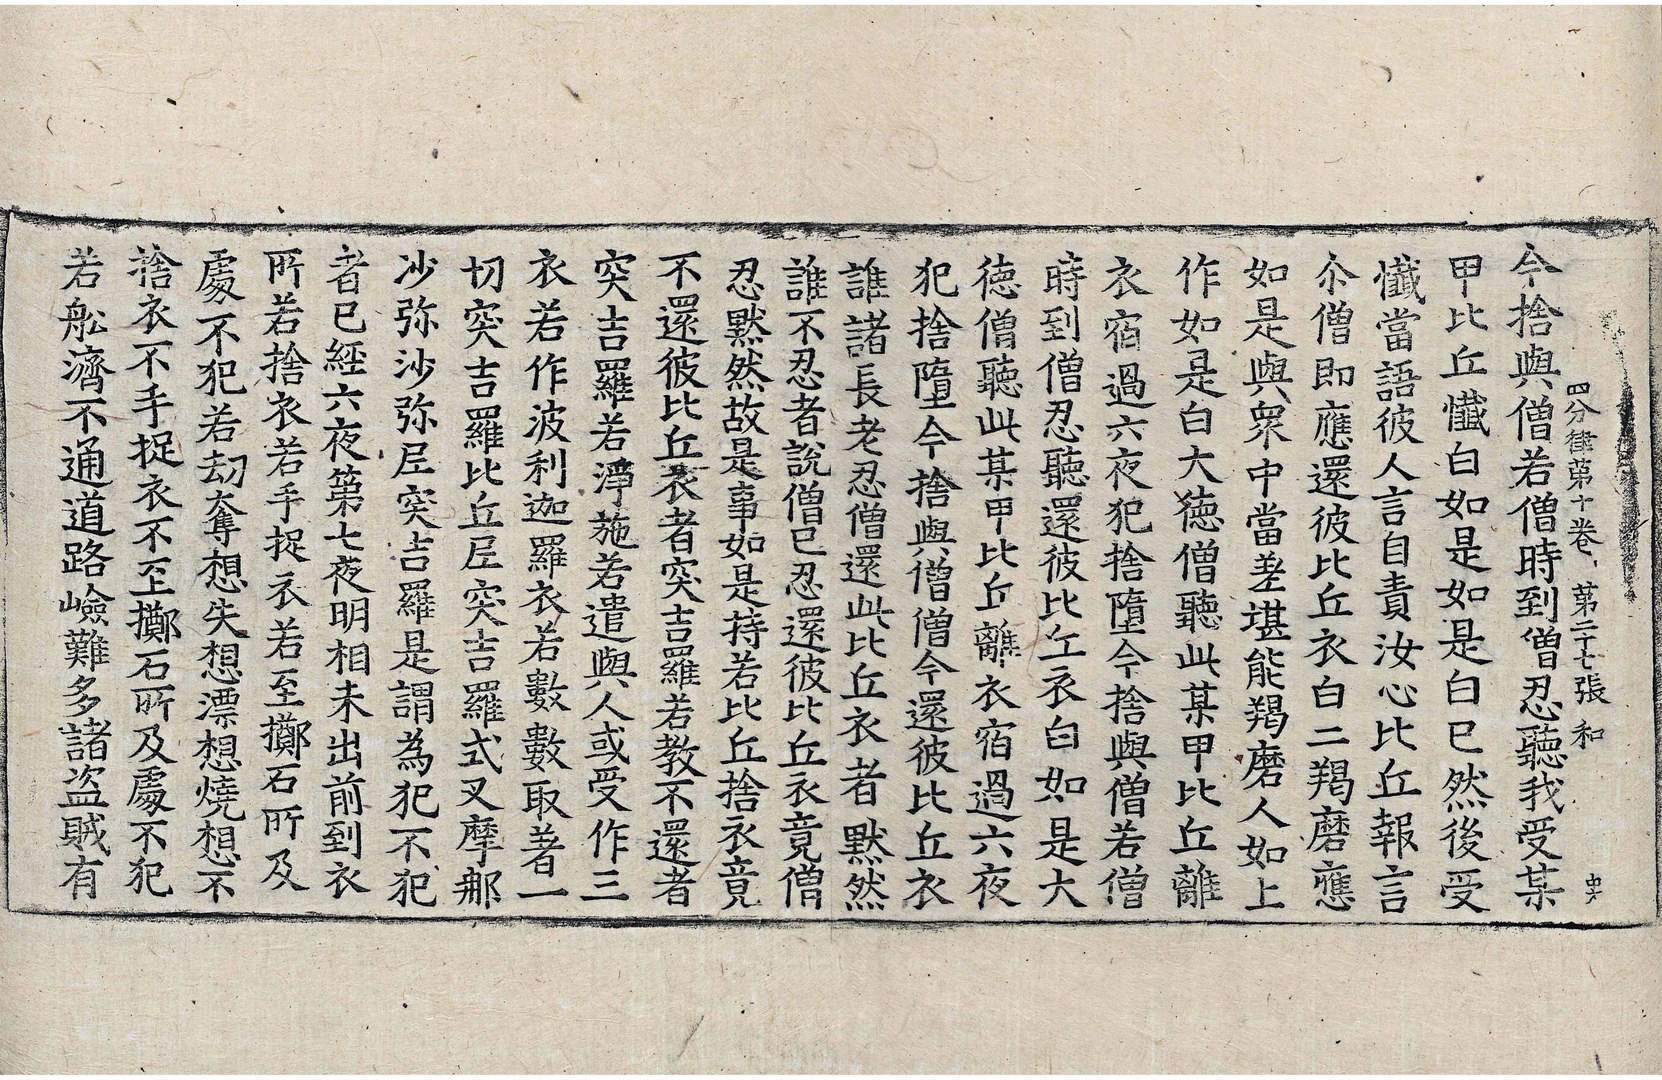 四分律第十卷 第二十七張 和
今捨與僧若僧時到僧忍聽我受某
甲比丘懺白如是如是白已然後受
懺當語彼人言自責汝心比丘報言
尒僧即應還彼比丘衣白二羯磨應
如是與衆中當差堪能羯磨人如上
作如是白大德僧聽此某甲比丘離
衣宿過六夜犯捨墮今捨與僧若僧
時到僧忍聽還彼比丘衣白如是大
德僧聽此某甲比丘離衣宿過六夜
犯捨墮今捨與僧僧今還彼比丘衣
誰諸長老忍僧還此比丘衣者默然
誰不忍者說僧已忍還彼比丘衣竟僧
忍默然故是事如是持若比丘捨衣竟
不還彼比丘衣者突吉羅若教不還者
突吉羅若淨施若遣與人或受作三
衣若作波利迦羅衣若數數取著一
切突吉羅比丘尼突吉羅式叉摩那
沙弥沙弥尼突吉羅是謂為犯不犯
者已經六夜第七夜明相未出前到衣
所若捨衣若手捉衣若至擲石所及
處不犯若劫奪想失想漂想燒想不
捨衣不手捉衣不至擲石所及處不犯
若舩濟不通道路嶮難多諸盜賊有